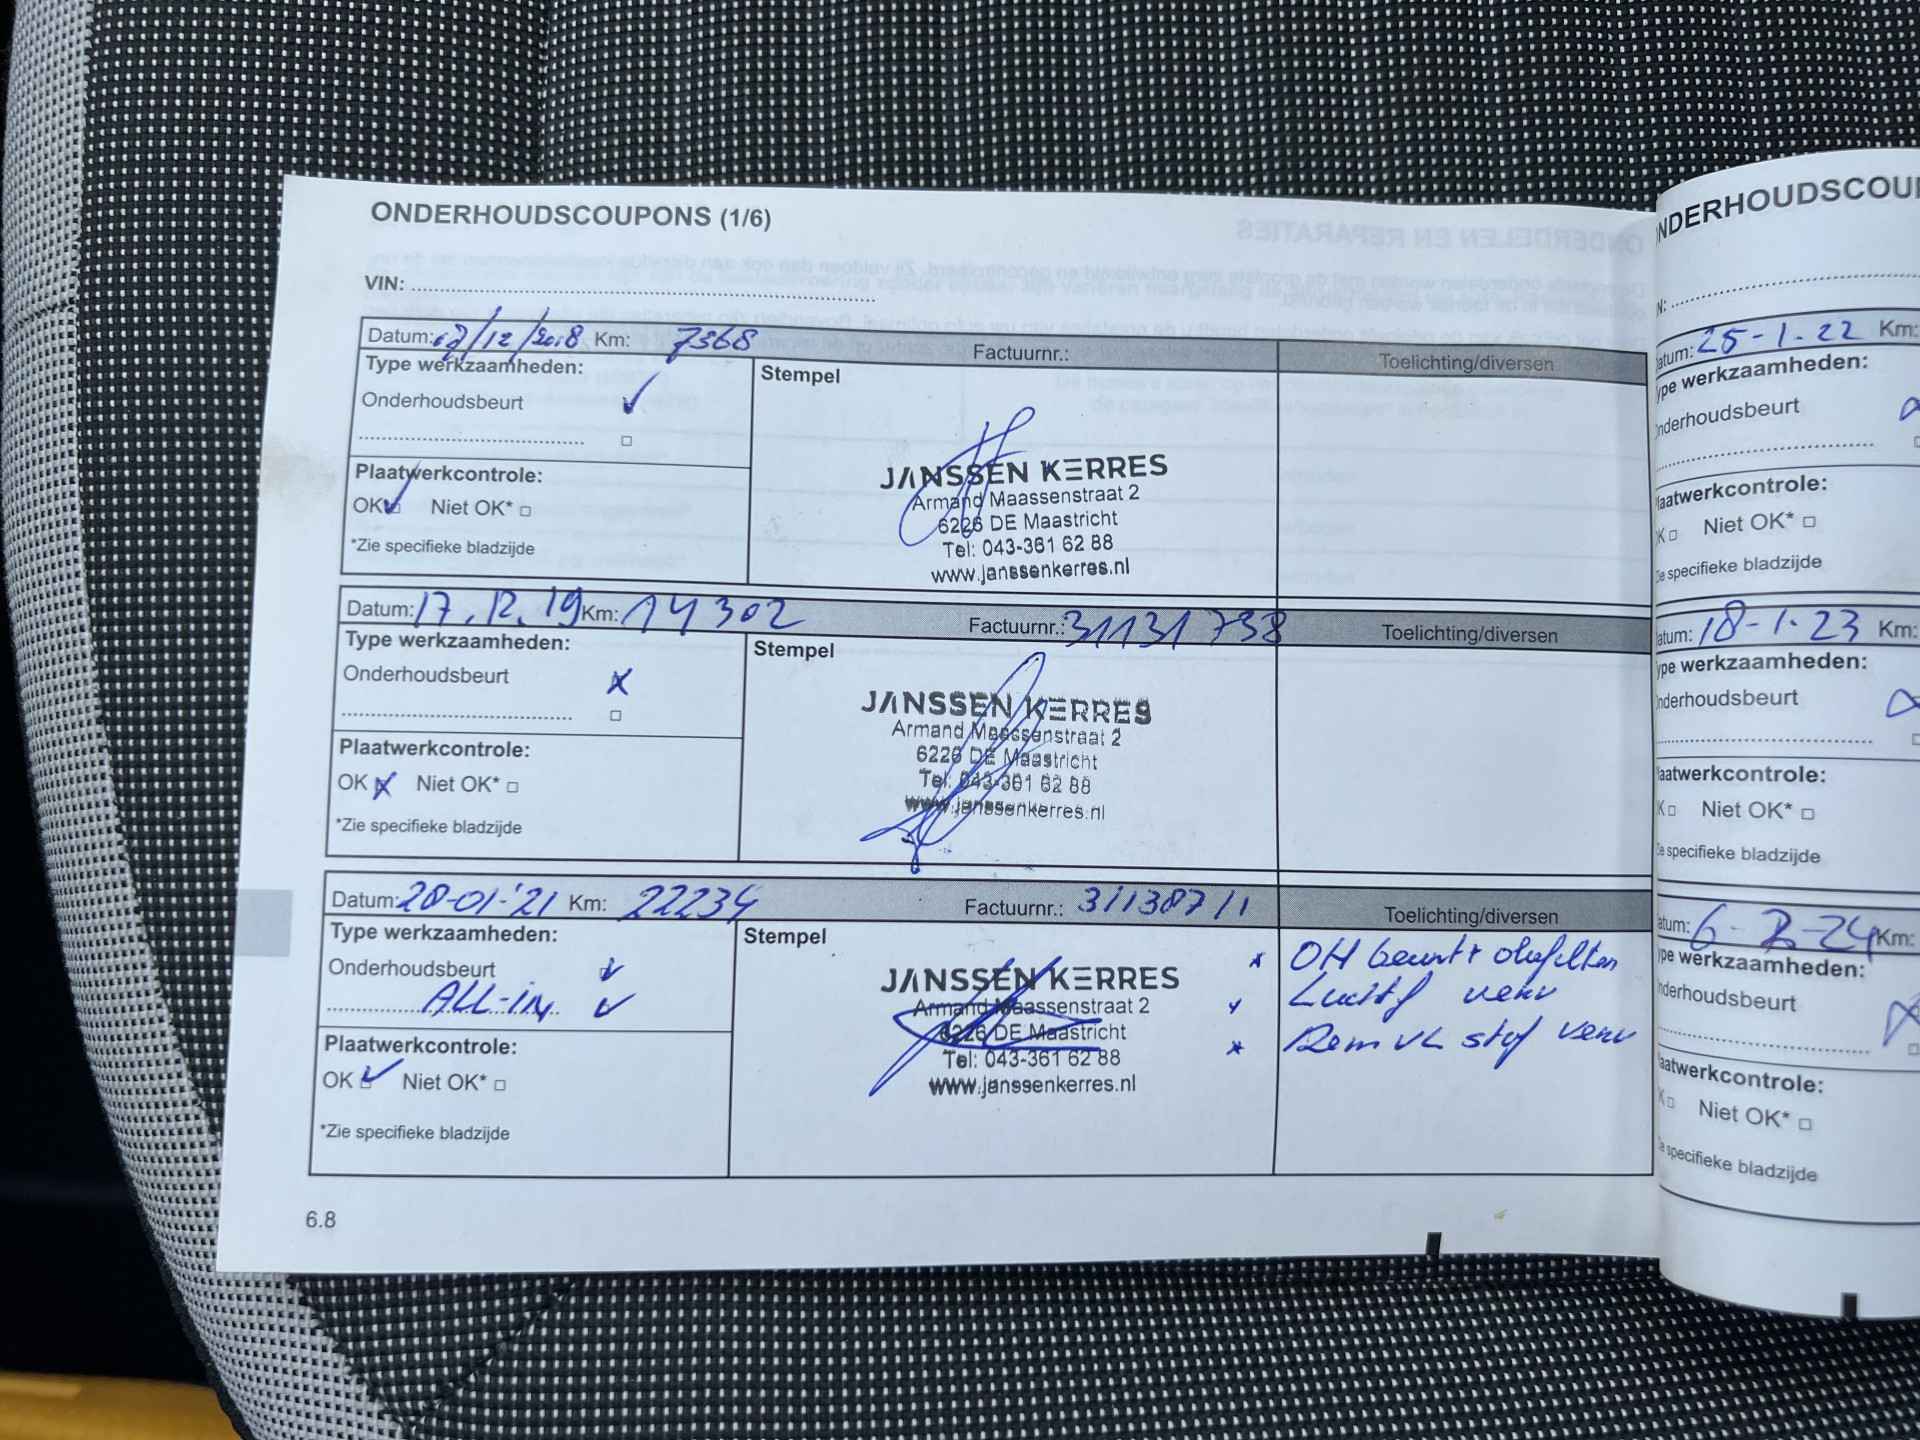 ONDERHOUDSCOUPONS (1/6)
VIN:
Datum: /12/2018 Km: 7368 Factuurnr.: Toelichting/diversen
Type werkzaamheden:
Stempel
Onderhoudsbeurt
Plaatwerkcontrole:
OK Niet OK*
*Zie specifieke bladzijde
JANSSEN KERRES
Armand Maassenstraat 2
6226 DE Maastricht
Tel: 043-361 62 88
www.janssenkerres.nl
Datum: 17.12.19 Km: 14302 Factuurnr.: 31131738 Toelichting/diversen
Type werkzaamheden:
Stempel
Onderhoudsbeurt
Plaatwerkcontrole:
OK Niet OK*
*Zie specifieke bladzijde
JANSSEN KERRES
Armand Maassenstraat 2
6226 DE Maastricht
Tel: 043-361 62 88
www.janssenkerres.nl
Datum: 28-01-'21 Km: 22234 Factuurnr.: 31138711 Toelichting/diversen
Type werkzaamheden:
Stempel
Onderhoudsbeurt
ALL-in
Plaatwerkcontrole:
OK Niet OK*
*Zie specifieke bladzijde
JANSSEN KERRES
Armand Maassenstraat 2
6226 DE Maastricht
Tel: 043-361 62 88
www.janssenkerres.nl
* OH beurt + oliefilter
* Luchtf verv
* Rem vl stof verv
6.8
NDERHOUDSCOU
N:
atum: 25-1-22 Km:
ype werkzaamheden:
nderhoudsbeurt
laatwerkcontrole:
K Niet OK*
ie specifieke bladzijde
atum: 18-1-23 Km:
ype werkzaamheden:
nderhoudsbeurt
laatwerkcontrole:
K Niet OK*
ie specifieke bladzijde
atum: 6-2-24 Km:
ype werkzaamheden:
nderhoudsbeurt
laatwerkcontrole:
K Niet OK*
e specifieke bladzijde